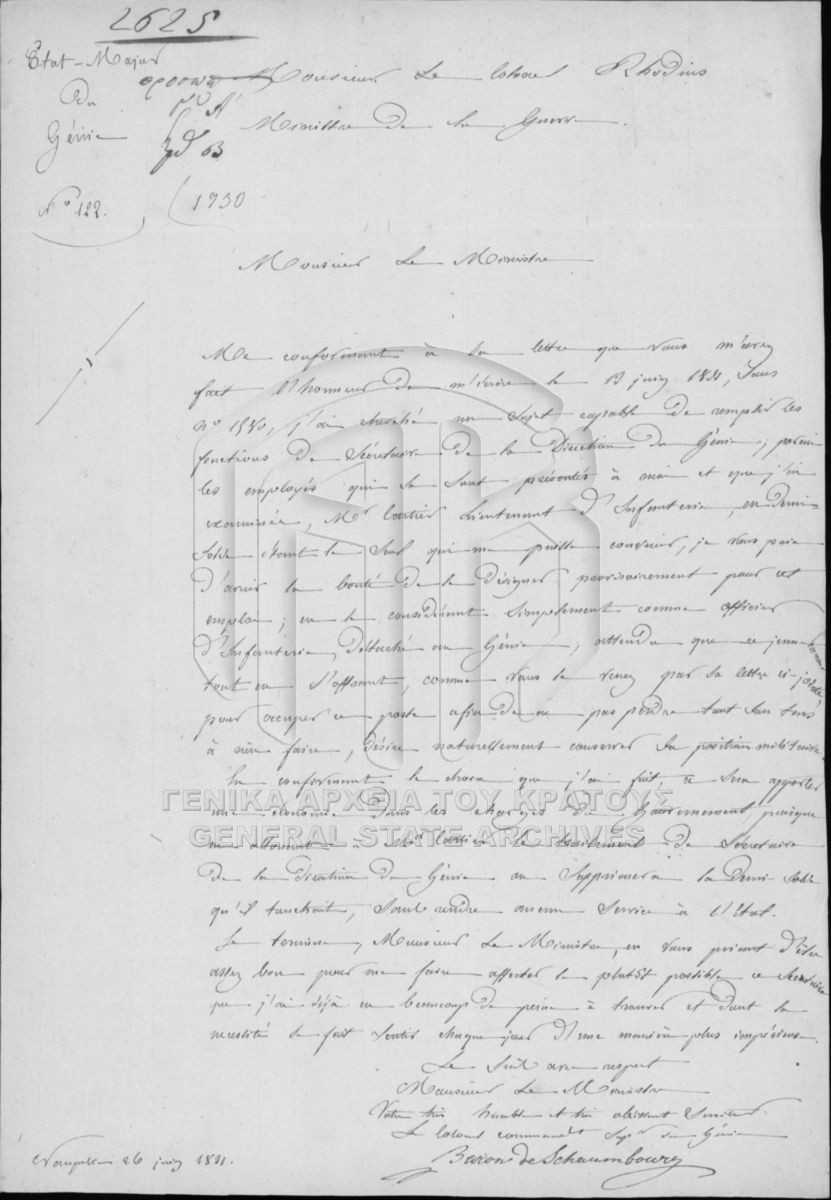 2625
Etat-Major
du
Génie
N° 122.
1730
Monsieur Le Colonel Rhodius
Ministre de la Guerre.
Monsieur Le Ministre
Me conformant à la lettre que vous m'avez
fait l'honneur de m'écrire le 13 juin 1831, sous
n° 1580, j'ai cherché un sujet capable de remplir les
fonctions de Sécretaire de la Direction du Génie; parmi
les employés qui se sont présentés à moi et que j'ai
examinés, Mr Cartier Lieutenant d'Infanterie, en demi
solde étant le seul qui me puisse convenir, je vous prie
d'avoir la bonté de le désigner provisoirement pour cet
emploi; en le considérant simplement comme officier
d'Infanterie, détaché au Génie; attendu que ce jeune homme
tout en s'offrant, comme vous le verrez par sa lettre ci-jointe,
pour occuper ce poste afin de ne pas perdre tout son tems
à rien faire, désire naturellement conserver sa position militaire.
En confirmant le choix que j'ai fait, ce sera apporter
une économie dans les charges du Gouvernement, puisque
en allouant à Mr Cartier le traitement de Sécretaire
de la direction du Génie on supprimera la demi solde
qu'il touchait, sans rendre aucun service à l'Etat.
Je termine, Monsieur Le Ministre, en vous priant d'être
assez bon pour me faire affecter le plutôt possible ce Secretaire
que j'ai déjà eu beaucoup de peine à trouver et dont la
necessité se fait sentir chaque jour d'une manière plus impérieuse.
Je suis avec respect
Monsieur Le Ministre
Votre très humble et très obéissant Serviteur
Le Colonel commandt Supr du Génie
Baron de Schaumbourg
Nauplie 26 juin 1831.
ΓΕΝΙΚΑ ΑΡΧΕΙΑ ΤΟΥ ΚΡΑΤΟΥΣ
GENERAL STATE ARCHIVES